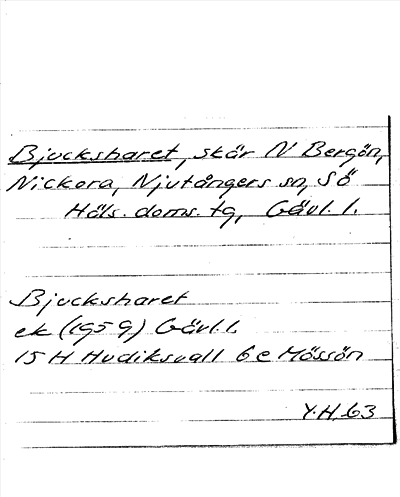 Bjucksharet, skär N Bergön,
Nickora, Njutångers sn, Sö
Häls. doms. tg, Gävl. l.
Bjucksharet
ek (1959) Gävl. l.
15 H Hudiksvall 6 e Mössön
Y.H. 63